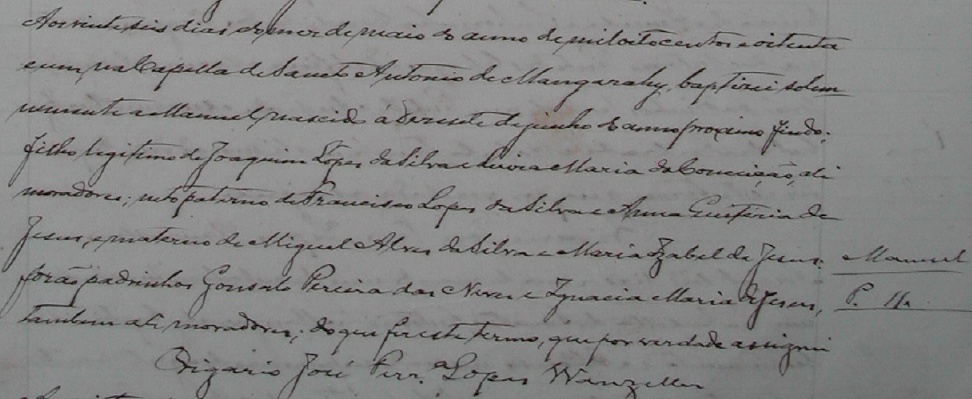 Aos vinte seis dias do mez de maio do anno de mil oitocentos e oitenta
e um, na Capella de Sancto Antonio de Mangarahy, baptizei solem
nemente a Manuel, nascido á dezesete de junho do anno proximo findo;
filho legitimo de Joaquim Lopes da Silva e Luvia Maria da Conceição, ali
moradores; neto paterno de Francisco Lopes da Silva e Anna Eufteria de
Jesus, e materno de Miguel Alves da Silva e Maria Izabel de Jesus.
forão padrinhos Gonsalo Pereira das Neves e Ignacia Maria de Jesus,
tambem ali moradores; do que fiz este termo, que por verdade assignei
Vigario José Perr.ª Lopes Wanzeller
Manuel
P.